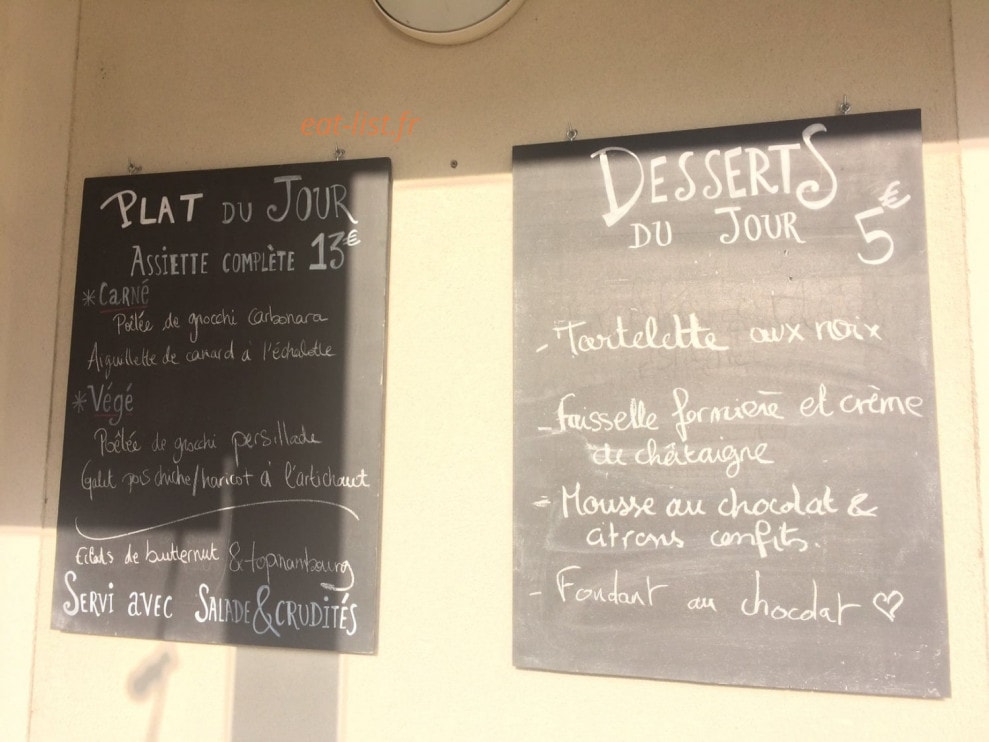 eat-list.fr
PLAT DU JOUR
ASSIETTE COMPLÈTE 13€
* Carné
Poêlée de gnocchi carbonara
Aiguillette de canard à l'échalotte
* Végé
Poêlée de gnocchi persillade
Galet pois chiche/haricot à l'artichaut
de butternut & topinambourg
SERVI AVEC SALADE & CRUDITÉS
DESSERTS
DU JOUR 5€
- Tartelette aux noix
- Faisselle fermière et crème
de châtaigne
- Mousse au chocolat &
citrons confits.
- Fondant au chocolat ♡